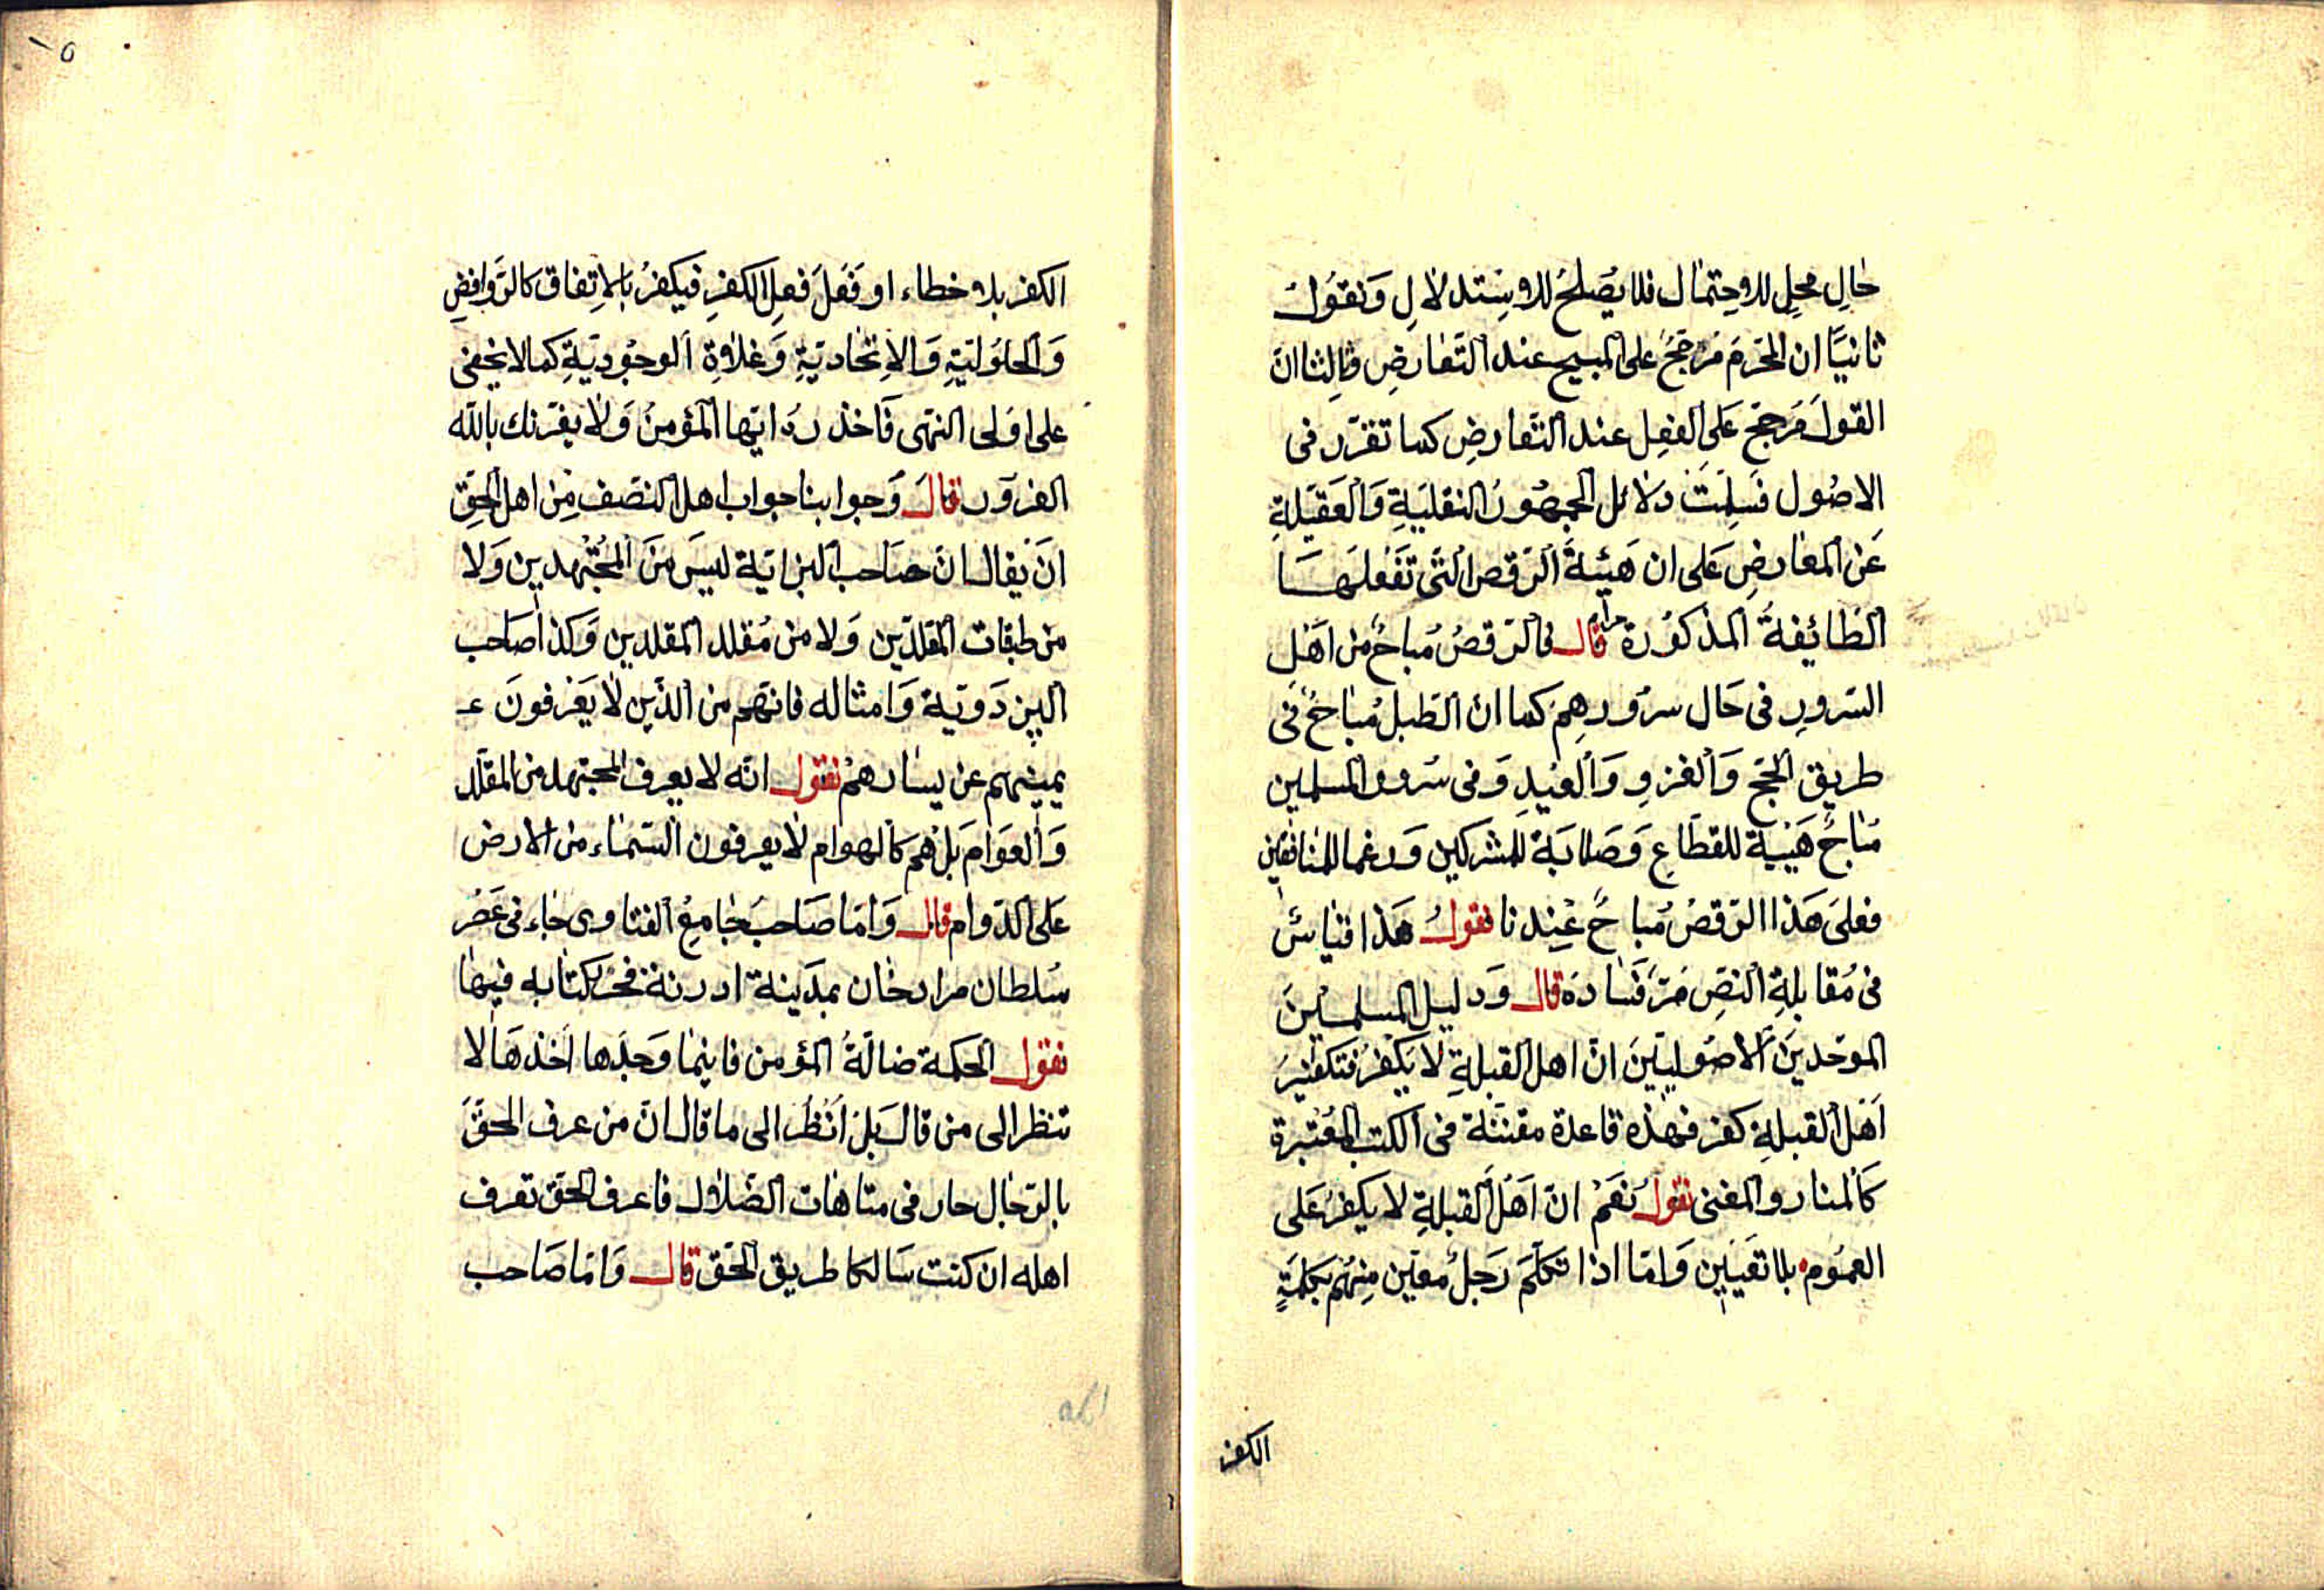 حال محل للاحتمال فلا يصلح للاستدلال ونقول
ثانيا ان المحرم مرجح على المبيح عند التعارض وثالثا ان
القول مرجح على الفعل عند التعارض كما تقرر في
الاصول فسلمت دلائل الجمهور النقلية والعقلية
عن المعارض على ان هيئة الرقص التي تفعلها
الطائفة المذكورة حرام قال فالرقص مباح من اهل
السرور في حال سرورهم كما ان الطبل مباح في
طريق الحج والغزو والعيد وفي سرور المسلمين
مباح هيبة للقطاع وصلابة للمشركين ورغما للمنافقين
فعلى هذا الرقص مباح عندنا نقول هذا قياس
في مقابلة النص مر فساده قال ودليل المسلمين
الموحدين الاصوليين ان اهل القبلة لا يكفر فتكفير
اهل القبلة كفر فهذه قاعدة مقننة في الكتب المعتبرة
كالمنار والمغنى نقول نعم ان اهل القبلة لا يكفر على
العموم بلا تعيين واما اذا تكلم رجل معين منهم بكلمة
الكفر
٥
الكفر بلا خطاء او فعل فعل الكفر فيكفر بالاتفاق كالروافض
والحلولية والاتحادية وغلاة الوجودية كما لا يخفى
على اولى النهى فاخذر ايها المؤمن ولا يغرنك بالله
الغرور قال وجوابنا جواب اهل النصف من اهل الحق
ان يقال ان صاحب البزازية ليس من المجتهدين ولا
من طبقات المقلدين ولا من مقلد المقلدين وكذا صاحب
البزدوية وامثاله فانهم من الذين لا يعرفون
يمينهم عن يسارهم نقول انه لا يعرف المجتهد من المقلد
والعوام بل هم كالهوام لا يعرفون السماء من الارض
على الدوام قال واما صاحب جامع الفتاوى جاء في عصر
سلطان مراد خان بمدينة ادرنة فحرر كتابه فيها
نقول الحكمة ضالة المؤمن فاينما وجدها اخذها لا
تنظر الى من قال بل انظر الى ما قال ان من عرف الحق
بالرجال حار في متاهات الضلال فاعرف الحق تعرف
اهله ان كنت سالكا طريق الحق قال واما صاحب